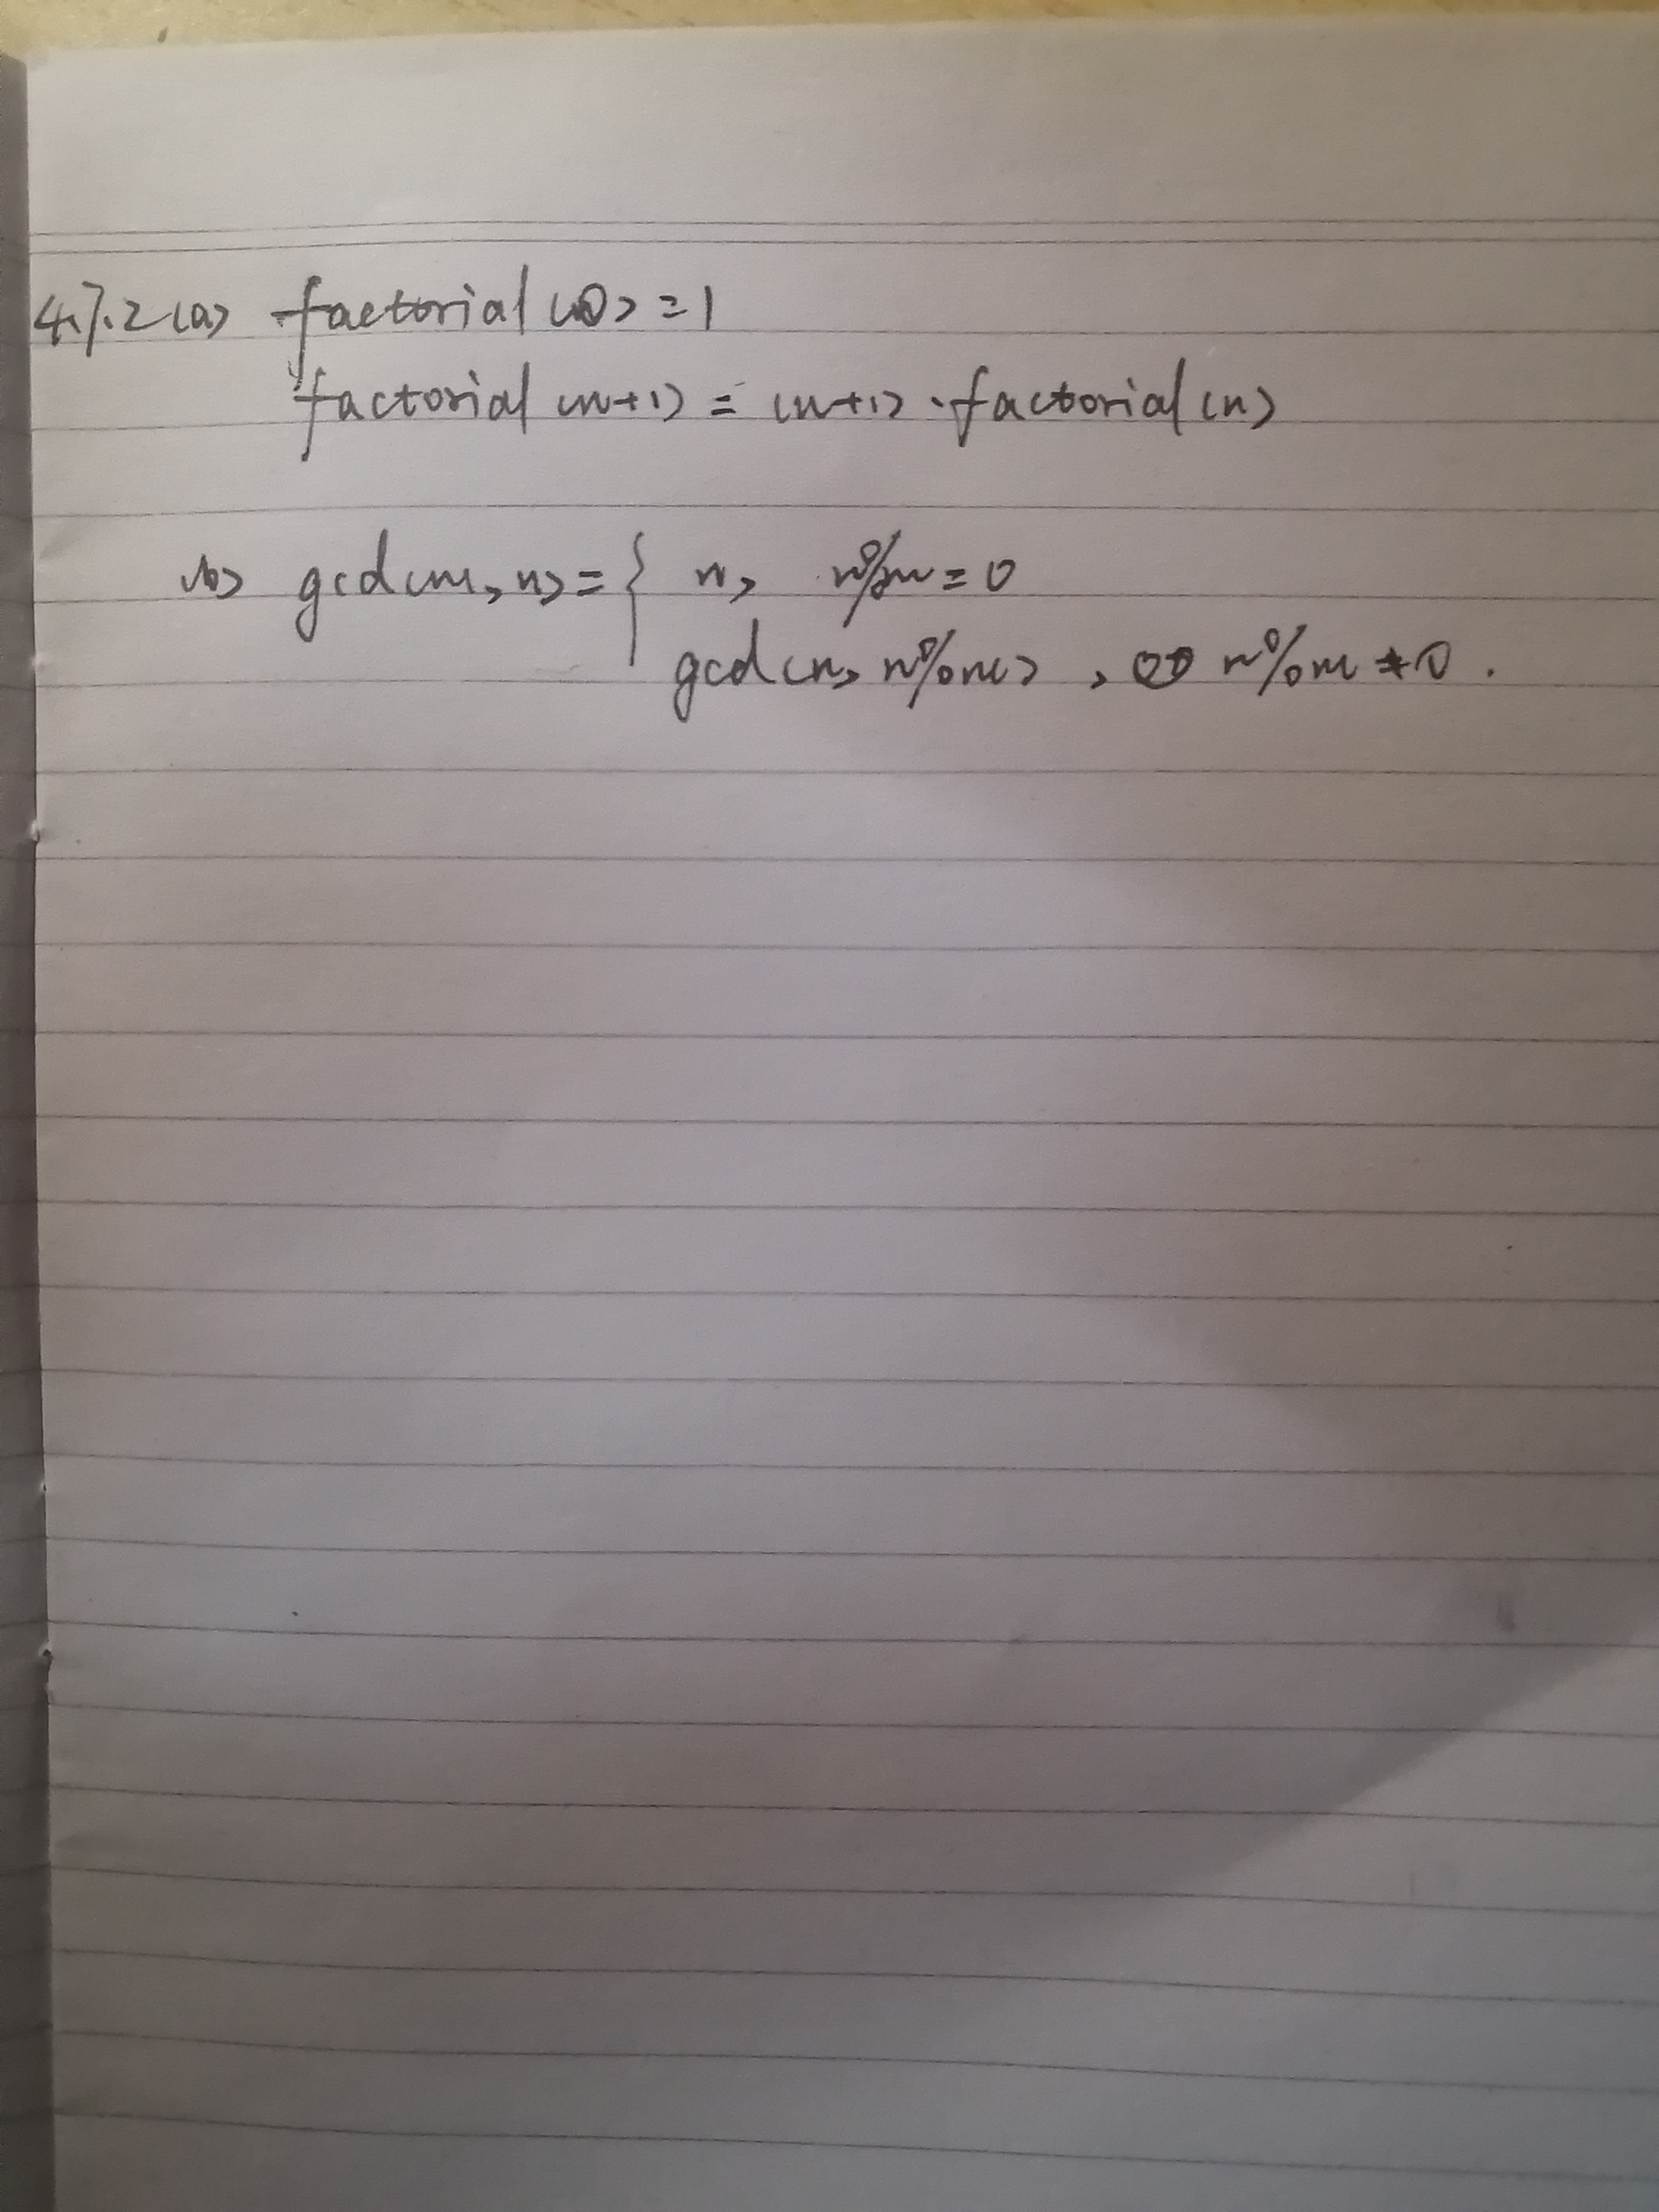 4.7.2 (a) factorial (0) = 1
factorial (n+1) = (n+1) · factorial (n)
(b) gcd (m, n) = { n, n%m = 0
gcd (n, n%m) , n%m ≠ 0 .